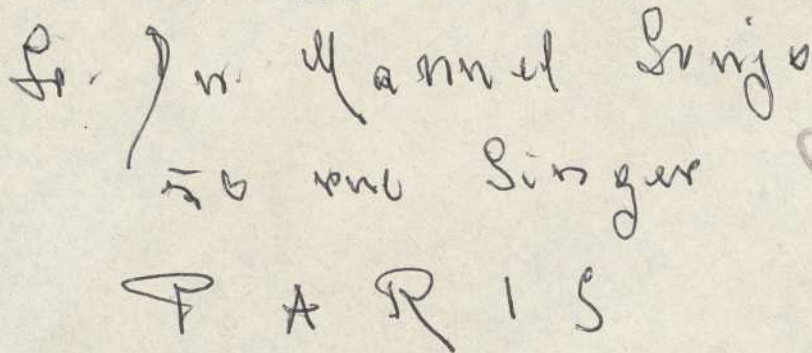 Sr. Dr. Manuel Lonjo
50 rue Singer
PARIS